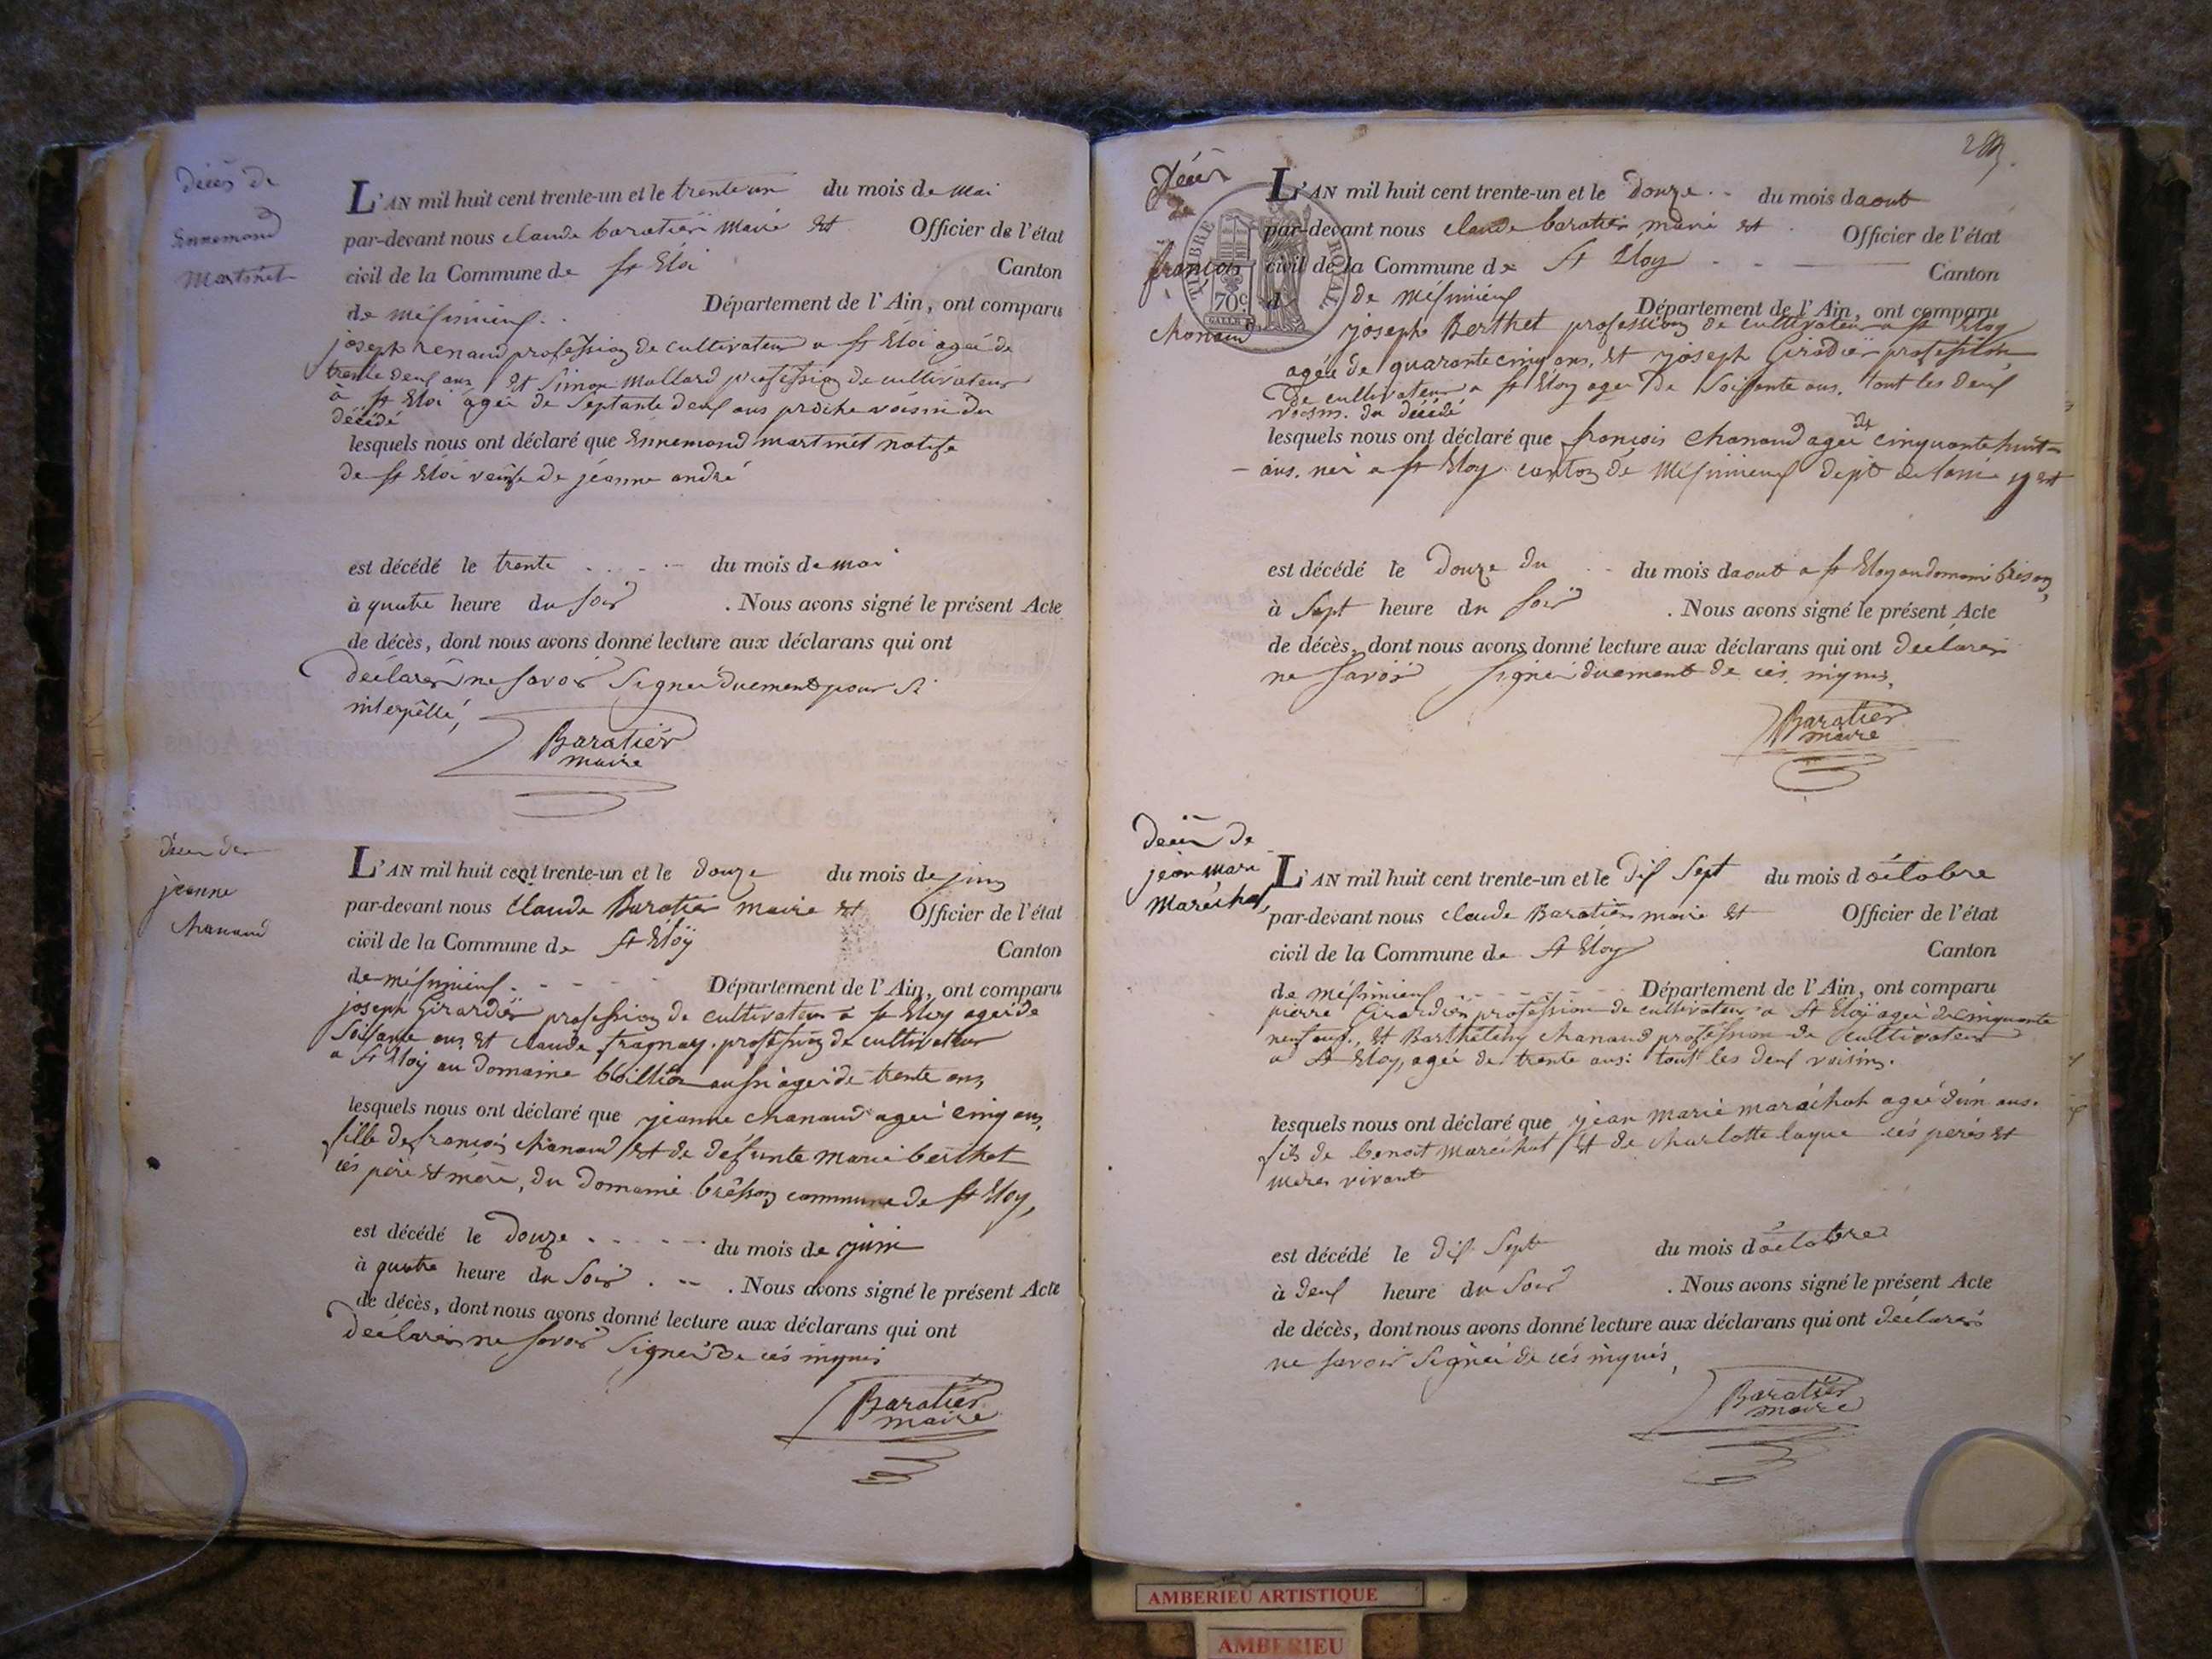 décès de
Ennemond
Martinet
L'AN mil huit cent trente-un et le trente un du mois de mai
par-devant nous claude baratier maire et Officier de l'état
civil de la Commune de St Eloi Canton
de méximieux Département de l'Ain, ont comparu
joseph renaud profession de cultivateur a St Eloi ageé de
trente deux ans et Simon Mallard profession de cultivateur
à St Eloi ageé de Septante deux ans proche voisin du
décédé
lesquels nous ont déclaré que Ennemond martinet natife
de St Eloi veufe de jéanne andré
est décédé le trente du mois de mai
à quatre heure du soir . Nous avons signé le présent Acte
de décès, dont nous avons donné lecture aux déclarans qui ont
déclarér ne savoir Signer duement pour
interpéllé,
Baratier
maire
décès de
jeanne
chanaud
L'AN mil huit cent trente-un et le douze du mois de juin
par-devant nous Claude Baratier maire et Officier de l'état
civil de la Commune de St Eloÿ Canton
de méximieux Département de l'Ain, ont comparu
joseph Girardier profession de cultivateur a St Eloy ageé de
Soixante ans et claude fragnay profession de cultivateur
a St Eloy au domaine aussi ageé de trente ans
lesquels nous ont déclaré que jeanne chanaud ageé cinq ans,
fille de françois chanaud et de défunte marie berthet
cés pére et mére, du domaine brêsson commune de St Eloy,
est décédé le douze du mois de juin
à quatre heure du Soir . Nous avons signé le présent Acte
de décès, dont nous avons donné lecture aux déclarans qui ont
déclarér ne savoir Signér de cés inquis
Baratier
maire
Décès
de
françois
chanaud
TIMBRE ROYAL
70c
L'AN mil huit cent trente-un et le douze du mois daout
par-devant nous claude baratier maire et Officier de l'état
civil de la Commune de St Eloy Canton
d de méximieux Département de l'Ain, ont comparu
joseph Berthet profession de cultivateur a St Eloy
ageé de quarante cinq ans, et joseph Girodier profession
de cultivateur a St Eloy ageé de Soixante ans. tout les deux
voisin du décédé
lesquels nous ont déclaré que francois chanaud ageé de cinquante huit
ans. neé a St Eloy canton de Méximieux dept de lain
est décédé le douze du du mois daout a St Eloy au domaine brêson,
à Sept heure du soir . Nous avons signé le présent Acte
de décès, dont nous avons donné lecture aux déclarans qui ont déclarér
ne savoir signér duement de cés inquis,
Baratier
maire
décès de
jean mari
Maréchal
L'AN mil huit cent trente-un et le dix Sept du mois d'octobre
par-devant nous claude Baratier maire et Officier de l'état
civil de la Commune de St Eloy Canton
de méximieux Département de l'Ain, ont comparu
pierre Girardier profession de cultivateur a St Eloÿ ageé de cinquante
neuf ans, et Barthélemy chanaud profession de Cultivateur
a St Eloy, ageé de trente ans: tout les deux voisins.
lesquels nous ont déclaré que jean marie maréchal ageé d'un ans.
fils de benoit maréchal et de charlotte cés perés et
meres vivant
est décédé le dix Sept du mois d'octobre
à deux heure du Soir . Nous avons signé le présent Acte
de décès, dont nous avons donné lecture aux déclarans qui ont déclarér
ne savoir Signér de cés inquis,
Baratier
maire
AMBERIEU ARTISTIQUE
AMBERIEU